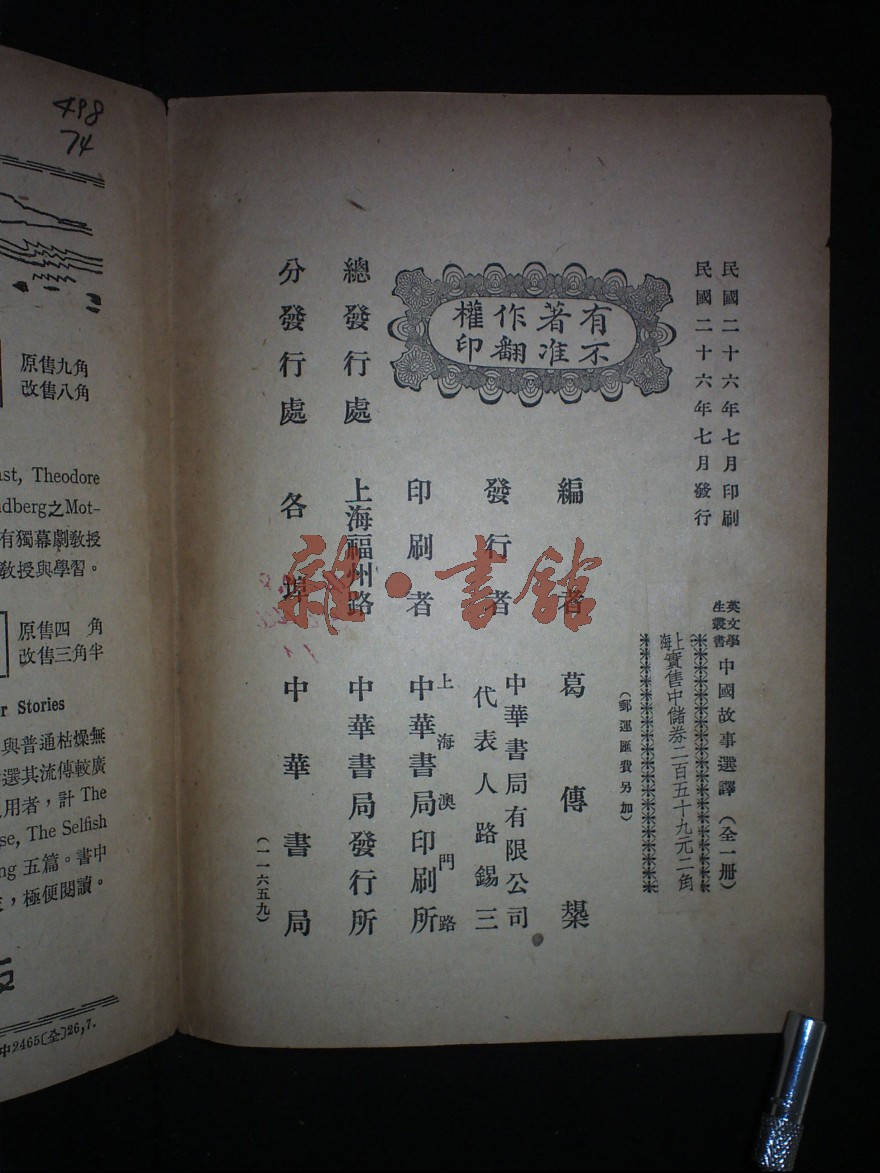 民國二十六年七月印刷
民國二十六年七月發行
英文學生叢書
中國故事選譯(全一册)
上海實售中儲券二百五十九元二角
(郵運匯費另加)
有著作權
不准翻印
編者 葛傳槼
發行者 中華書局有限公司
代表人路錫三
印刷者 上海澳門路
中華書局印刷所
總發行處 上海福州路 中華書局發行所
分發行處 各埠中華書局
(一一六五九)
雜·書館
498
74
原售九角
改售八角
ast, Theodore
dberg之Mot-
有獨幕劇教授
教授與學習。
原售四角
改售三角半
r Stories
與普通枯燥無
選其流傳較廣
用者,計 The
se, The Selfish
ng 五篇。書中
,極便閱讀。
中2465〔全〕26,7.